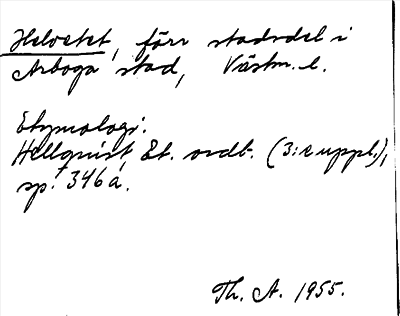 Helvetet, förr stadsdel i
Arboga stad, Västm. l.
Etymologi.
Hellquist, Et. ordb. (3:e uppl.),
sp. 346 a.
Th. A. 1955.